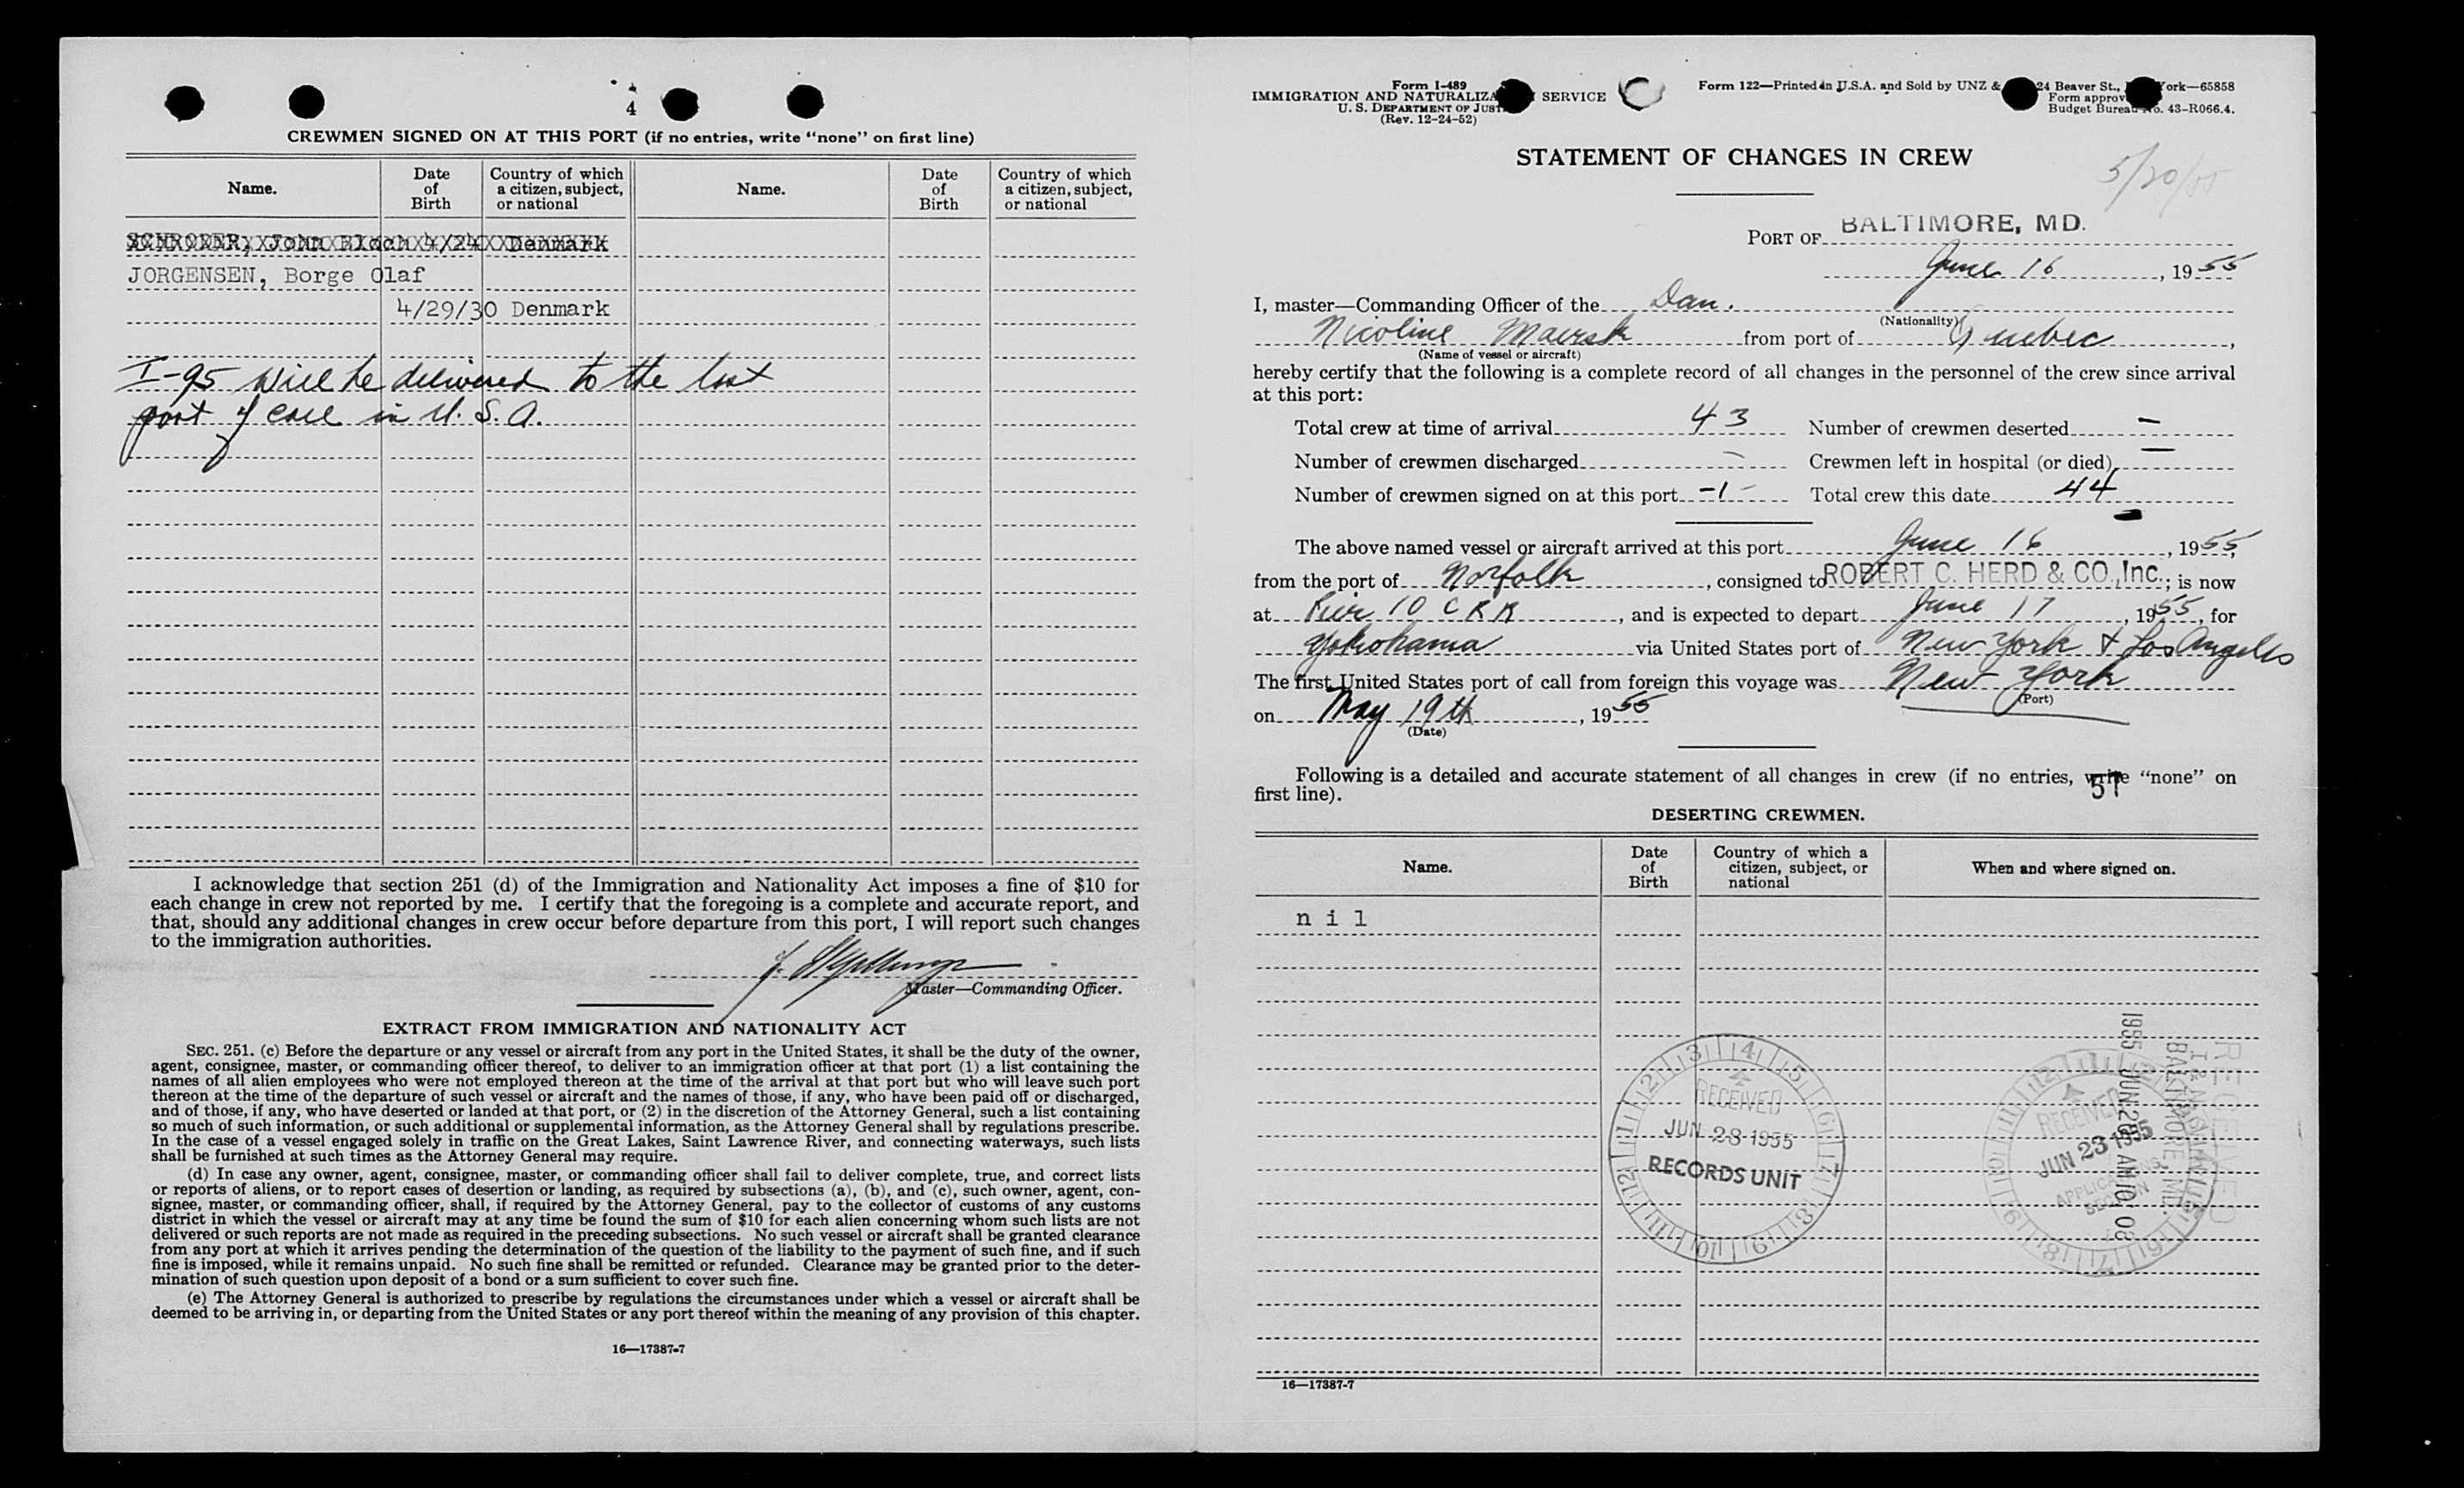 4
CREWMEN SIGNED ON AT THIS PORT (if no entries, write "none" on first line)
Name. Date of Birth Country of which a citizen, subject, or national Name. Date of Birth Country of which a citizen, subject, or national
SCHRODER, John 4/24 Denmark
JORGENSEN, Borge Olaf
4/29/30 Denmark
I-95 will be delivered to the last
port of call in U. S. A.
I acknowledge that section 251 (d) of the Immigration and Nationality Act imposes a fine of $10 for
each change in crew not reported by me. I certify that the foregoing is a complete and accurate report, and
that, should any additional changes in crew occur before departure from this port, I will report such changes
to the immigration authorities.
Master—Commanding Officer.
EXTRACT FROM IMMIGRATION AND NATIONALITY ACT
SEC. 251. (c) Before the departure or any vessel or aircraft from any port in the United States, it shall be the duty of the owner,
agent, consignee, master, or commanding officer thereof, to deliver to an immigration officer at that port (1) a list containing the
names of all alien employees who were not employed thereon at the time of the arrival at that port but who will leave such port
thereon at the time of the departure of such vessel or aircraft and the names of those, if any, who have been paid off or discharged,
and of those, if any, who have deserted or landed at that port, or (2) in the discretion of the Attorney General, such a list containing
so much of such information, or such additional or supplemental information, as the Attorney General shall by regulations prescribe.
In the case of a vessel engaged solely in traffic on the Great Lakes, Saint Lawrence River, and connecting waterways, such lists
shall be furnished at such times as the Attorney General may require.
(d) In case any owner, agent, consignee, master, or commanding officer shall fail to deliver complete, true, and correct lists
or reports of aliens, or to report cases of desertion or landing, as required by subsections (a), (b), and (c), such owner, agent, con-
signee, master, or commanding officer, shall, if required by the Attorney General, pay to the collector of customs of any customs
district in which the vessel or aircraft may at any time be found the sum of $10 for each alien concerning whom such lists are not
delivered or such reports are not made as required in the preceding subsections. No such vessel or aircraft shall be granted clearance
from any port at which it arrives pending the determination of the question of the liability to the payment of such fine, and if such
fine is imposed, while it remains unpaid. No such fine shall be remitted or refunded. Clearance may be granted prior to the deter-
mination of such question upon deposit of a bond or a sum sufficient to cover such fine.
(e) The Attorney General is authorized to prescribe by regulations the circumstances under which a vessel or aircraft shall be
deemed to be arriving in, or departing from the United States or any port thereof within the meaning of any provision of this chapter.
16—17387-7
Form I-489
IMMIGRATION AND NATURALIZA SERVICE
U. S. DEPARTMENT OF JUST
(Rev. 12-24-52)
Form 122—Printed in U.S.A. and Sold by UNZ & 24 Beaver St., ork—65858
Form approv
Budget Bureau No. 43-R066.4.
STATEMENT OF CHANGES IN CREW
5/20/55
PORT OF BALTIMORE, MD.
June 16, 1955
I, master—Commanding Officer of the Dan.
(Nationality)
Nicoline Maersk from port of Quebec,
(Name of vessel or aircraft)
hereby certify that the following is a complete record of all changes in the personnel of the crew since arrival
at this port:
Total crew at time of arrival 43 Number of crewmen deserted —
Number of crewmen discharged — Crewmen left in hospital (or died) —
Number of crewmen signed on at this port -1- Total crew this date 44
The above named vessel or aircraft arrived at this port June 16, 1955,
from the port of Norfolk, consigned to ROBERT C. HERD & CO., Inc.; is now
at Pier 10 C R R, and is expected to depart June 17, 1955, for
Yokohama via United States port of New York & Los Angeles
The first United States port of call from foreign this voyage was New York
(Port)
on May 19th, 1955
(Date)
Following is a detailed and accurate statement of all changes in crew (if no entries, write "none" on
first line).
57
DESERTING CREWMEN.
Name. Date of Birth Country of which a citizen, subject, or national When and where signed on.
n i l
RECEIVED
JUN 28 1955
RECORDS UNIT
RECEIVED
JUN 23 1955
RECEIVED
I & N
BALTIMORE MD.
1955 JUN 20 AM 10 08
16—17387-7